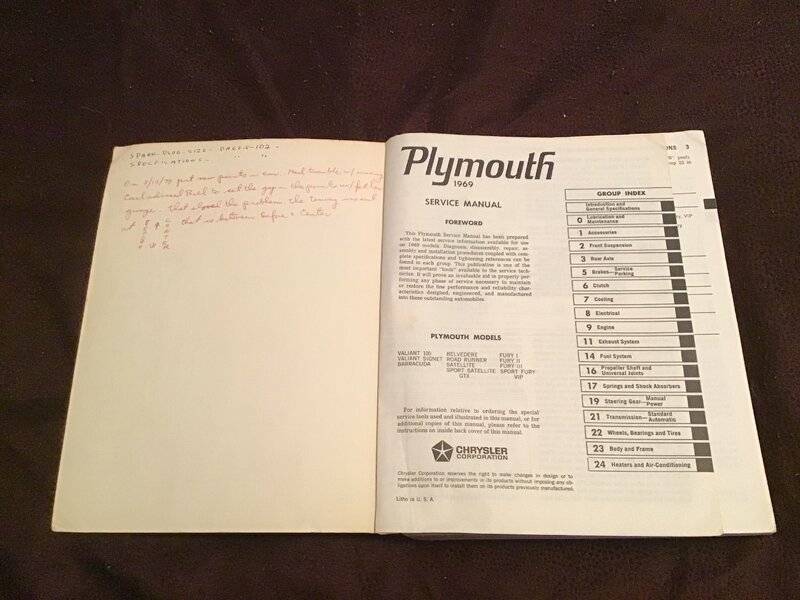 SPARK PLUG SIZE PAGE 8-102
SPECIFICATIONS
On put new points in car. Had trouble w/
Carl advised Bill to set the gap on the points w/
gauge. That solved the problem. The timing
is that is between before & center
Plymouth
1969
SERVICE MANUAL
FOREWORD
This Plymouth Service Manual has been prepared
with the latest service information available for use
on 1969 models. Diagnosis, disassembly, repair, as-
sembly and installation procedures coupled with com-
plete specifications and tightening references can be
found in each group. This publication is one of the
most important "tools" available to the service tech-
nician. It will prove an invaluable aid in properly per-
forming any phase of service necessary to maintain
or restore the fine performance and reliability char-
acteristics designed, engineered, and manufactured
into these outstanding automobiles.
PLYMOUTH MODELS
VALIANT 100 BELVEDERE FURY I
VALIANT SIGNET ROAD RUNNER FURY II
BARRACUDA SATELLITE FURY III
SPORT SATELLITE SPORT FURY
GTX VIP
For information relative to ordering the special
service tools used and illustrated in this manual, or for
additional copies of this manual, please refer to the
instructions on inside back cover of this manual.
CHRYSLER
CORPORATION
Chrysler Corporation reserves the right to make changes in design or to
make additions to or improvements in its products without imposing any ob-
ligations upon itself to install them on its products previously manufactured.
Litho in U. S. A
GROUP INDEX
Introduction and
General Specifications
0 Lubrication and
Maintenance
1 Accessories
2 Front Suspension
3 Rear Axle
5 Brakes—Service
Parking
6 Clutch
7 Cooling
8 Electrical
9 Engine
11 Exhaust System
14 Fuel System
16 Propeller Shaft and
Universal Joints
17 Springs and Shock Absorbers
19 Steering Gear—Manual
Power
21 Transmission—Standard
Automatic
22 Wheels, Bearings and Tires
23 Body and Frame
24 Heaters and Air-Conditioning
ONS 3
VIP